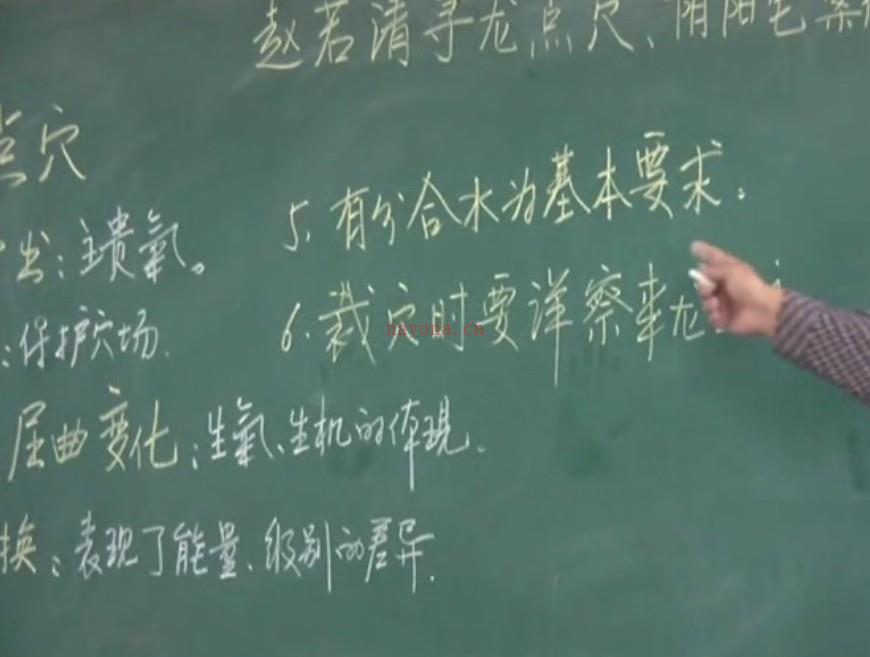 赵若清寻龙点穴、阴阳宅
点穴
出:主贵氣。
:保护穴场.
屈曲变化:生氣、生机的体現.
换:表现了能量、级别的差异.
5、有分合水为基本要求.
6、裁穴时要详察来龙
nayona.cn